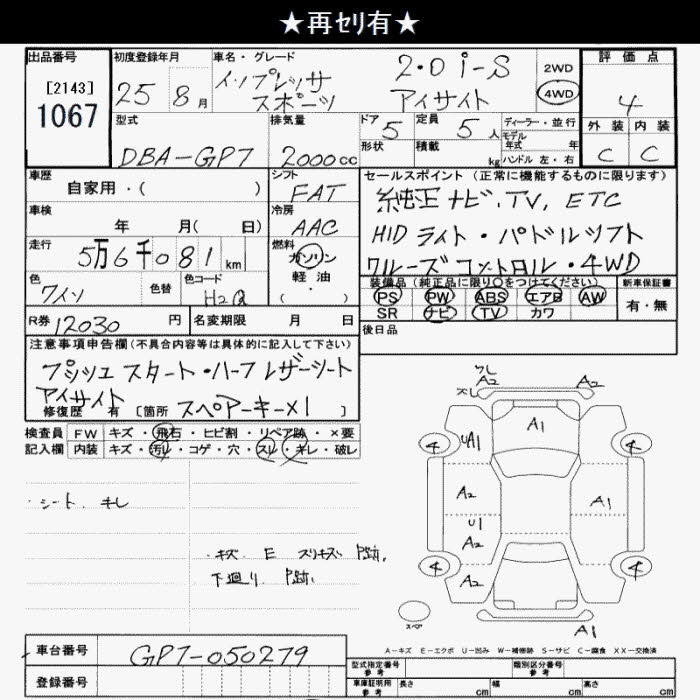 ★再ｾﾘ有★
出品番号
[2143]
1067
初度登録年月
25 8月
車名・グレード
インプレッサ 2.0i-S
スポーツ アイサイト
2WD
4WD
評価点
4
外装 内装
C C
型式
DBA-GP7
排気量
2000cc
ドア
5
形状
定員
5人
積載
kg
ディーラー・並行
モデル年式 年
ハンドル 左・右
車歴
自家用・( )
シフト
FAT
車検
年 月( 日)
冷房
AAC
走行
5万6千081km
燃料
ガソリン
軽油
( ・ )
色
ワイン
色替
色コード
H2Q
R券 12030 円
名変期限 月 日
セールスポイント(正常に機能するものに限ります)
純正ナビ、TV、ETC
HIDライト・パドルシフト
クルーズコントロル・4WD
装備品(純正品に限り○をつけてください)
PS PW ABS エアB AW
SR ナビ TV カワ
新車保証書
有・無
後日品
注意事項申告欄(不具合内容等は具体的に記入して下さい)
プッシュスタート・ハーフレザーシート
アイサイト
修復歴 有 [箇所 スペアーキー×1 ]
検査員 FW キズ・飛石・ヒビ割・リペア跡・×要
記入欄 内装 キズ・汚レ・コゲ・穴・スレ・キレ・破レ
・シート、キレ
・キズ E スリキズ P跡、
下廻り P跡、
スレ
A2
A2
A1
4
4
UA1
A2
A1
U1
A2
A2
4
4
スペア
A1
A-キズ E-エクボ U-凹み W-補修跡 S-サビ C-腐食 XX-交換済
車台番号
GP7-050279
登録番号
型式指定番号
参考
類別区分番号
参考
車庫証明用
参考
長さ cm
幅 cm
高さ cm